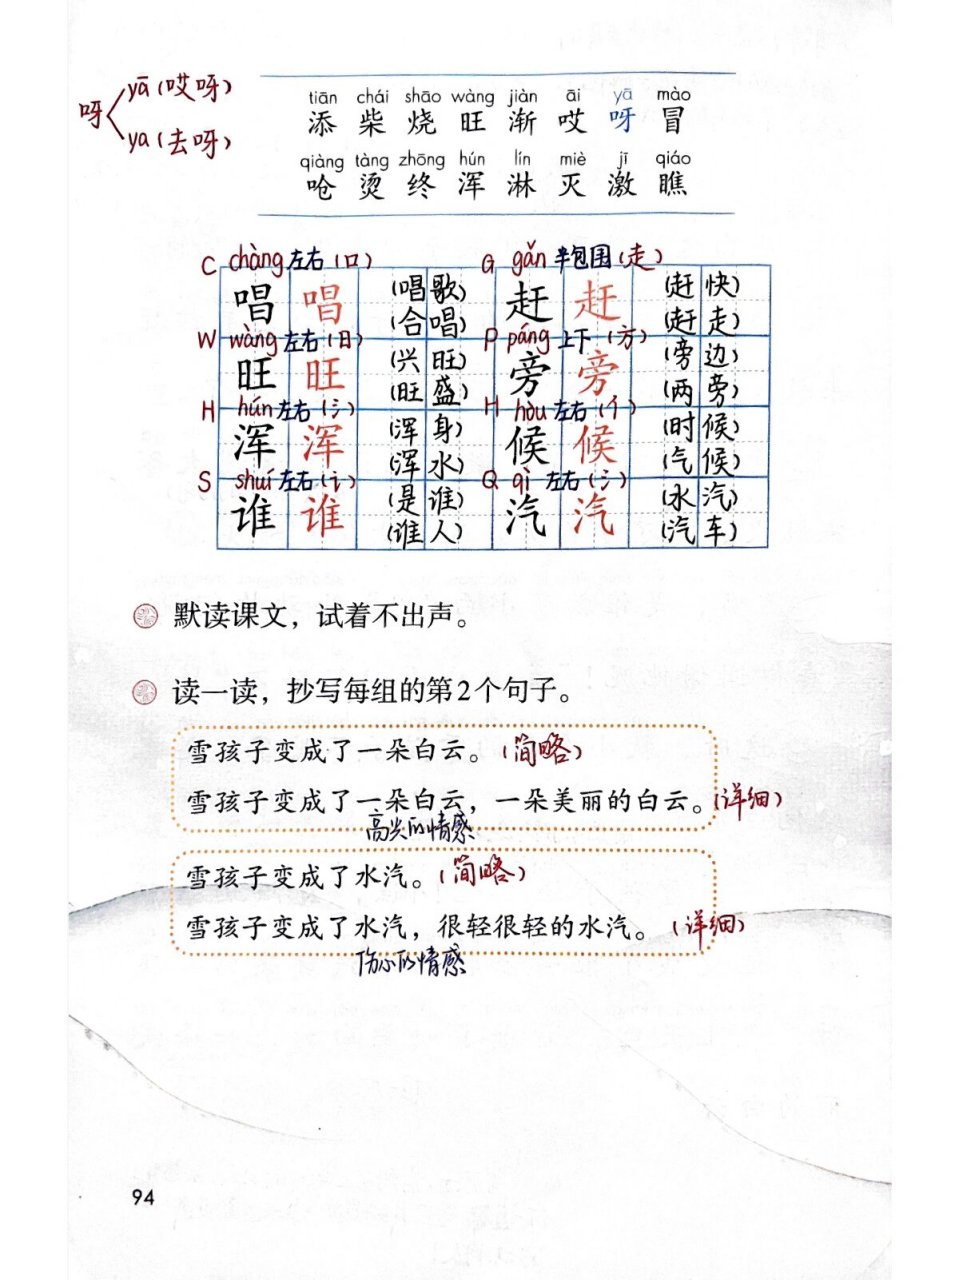 呀 yā(哎呀)
ya(去呀)
tiān chái shāo wàng jiàn āi yā mào
添 柴 烧 旺 渐 哎 呀 冒
qiàng tàng zhōng hún lín miè jī qiáo
呛 烫 终 浑 淋 灭 激 瞧
C chàng 左右(口) G gǎn 半包围(走)
唱 唱 (唱歌) 赶 赶 (赶快)
(合唱) (赶走)
W wàng 左右(日) P páng 上下(方)
旺 旺 (兴旺) 旁 旁 (旁边)
(旺盛) (两旁)
H hún 左右(氵) H hòu 左右(亻)
浑 浑 (浑身) 候 候 (时候)
(浑水) (气候)
S shuí 左右(讠) Q qì 左右(氵)
谁 谁 (是谁) 汽 汽 (水汽)
(谁人) (汽车)
默读课文，试着不出声。
读一读，抄写每组的第2个句子。
雪孩子变成了一朵白云。(简略)
雪孩子变成了一朵白云，一朵美丽的白云。(详细)
高兴的情感
雪孩子变成了水汽。(简略)
雪孩子变成了水汽，很轻很轻的水汽。(详细)
伤心的情感
94